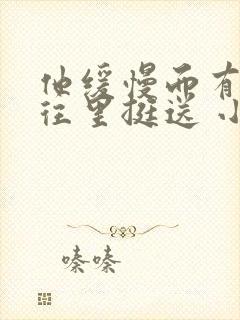 他缓慢而有
往里挺送 小
嗪嗪